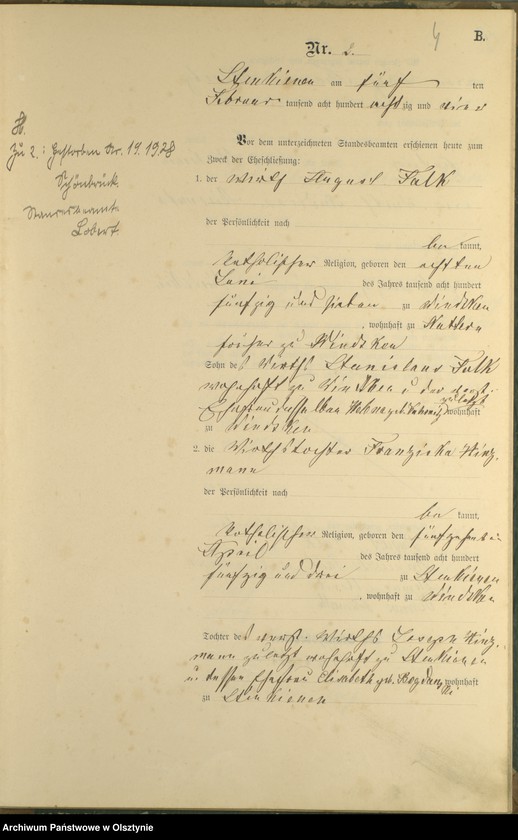 4
B.
Nr. 2.
Stenkienen am fünf ten
Februar tausend acht hundert achtzig und vier
B.
Zu 2: Gestorben Nr. 19. 1928
Schönbrück
Standesbeamte
Lobert
Vor dem unterzeichneten Standesbeamten erschienen heute zum
Zweck der Eheschließung:
1. der Wirth August Falk
der Persönlichkeit nach
be kannt,
katholischer Religion, geboren den achten
Juni des Jahres tausend acht hundert
fünfzig und sieben zu Windtken
, wohnhaft zu Nattern
früher zu Windtken
Sohn des Wirths Stanislaus Falk
wohnhaft zu Windtken u. der
Ehefrau desselben geb. wohnhaft
zu Windtken
2. die Wirthstochter Franziska Hinz-
mann
der Persönlichkeit nach
be kannt,
katholischer Religion, geboren den fünfzehnten
April des Jahres tausend acht hundert
fünfzig und drei zu Stenkienen
, wohnhaft zu Windtken
Tochter des verst. Wirths Joseph Hinz-
mann zuletzt wohnhaft zu Stenkienen
u. dessen Ehefrau Elisabeth geb. Bogdanski wohnhaft
zu Stenkienen
Archiwum Państwowe w Olsztynie